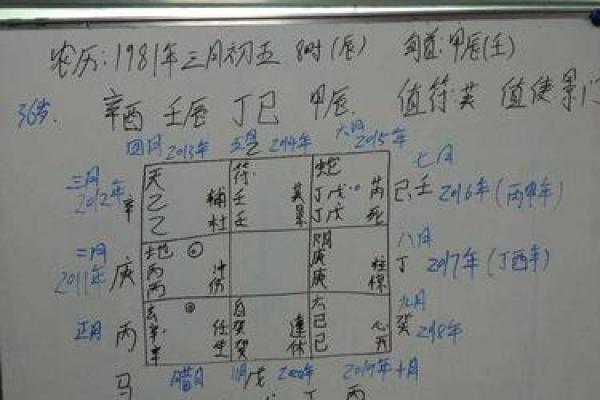 农历:1981年三月初五 8时(辰) 旬首:甲辰(壬)
36岁. 辛酉 壬辰 丁巳 甲辰. 值符:英 值使:景门
四月 2013年 五月 乙 2014年 六月 2015年
三月 2012年 辛
天 乙 乙 辅 杜
符 壬 壬 英 景
蛇 丁戊 丁戊 芮 死
七月 己 壬 2016年(丙申年)
二月 2011年 庚
地 丙 丙 冲 伤
阴 庚 庚 柱
八月 丁 2017年(丁酉年)
正月 丙
辛 辛 任 生
癸 癸 蓬 休
六 己 己 心 开
九月 癸 2018年
马 腊月 戊 2019年 十月
丁 丙